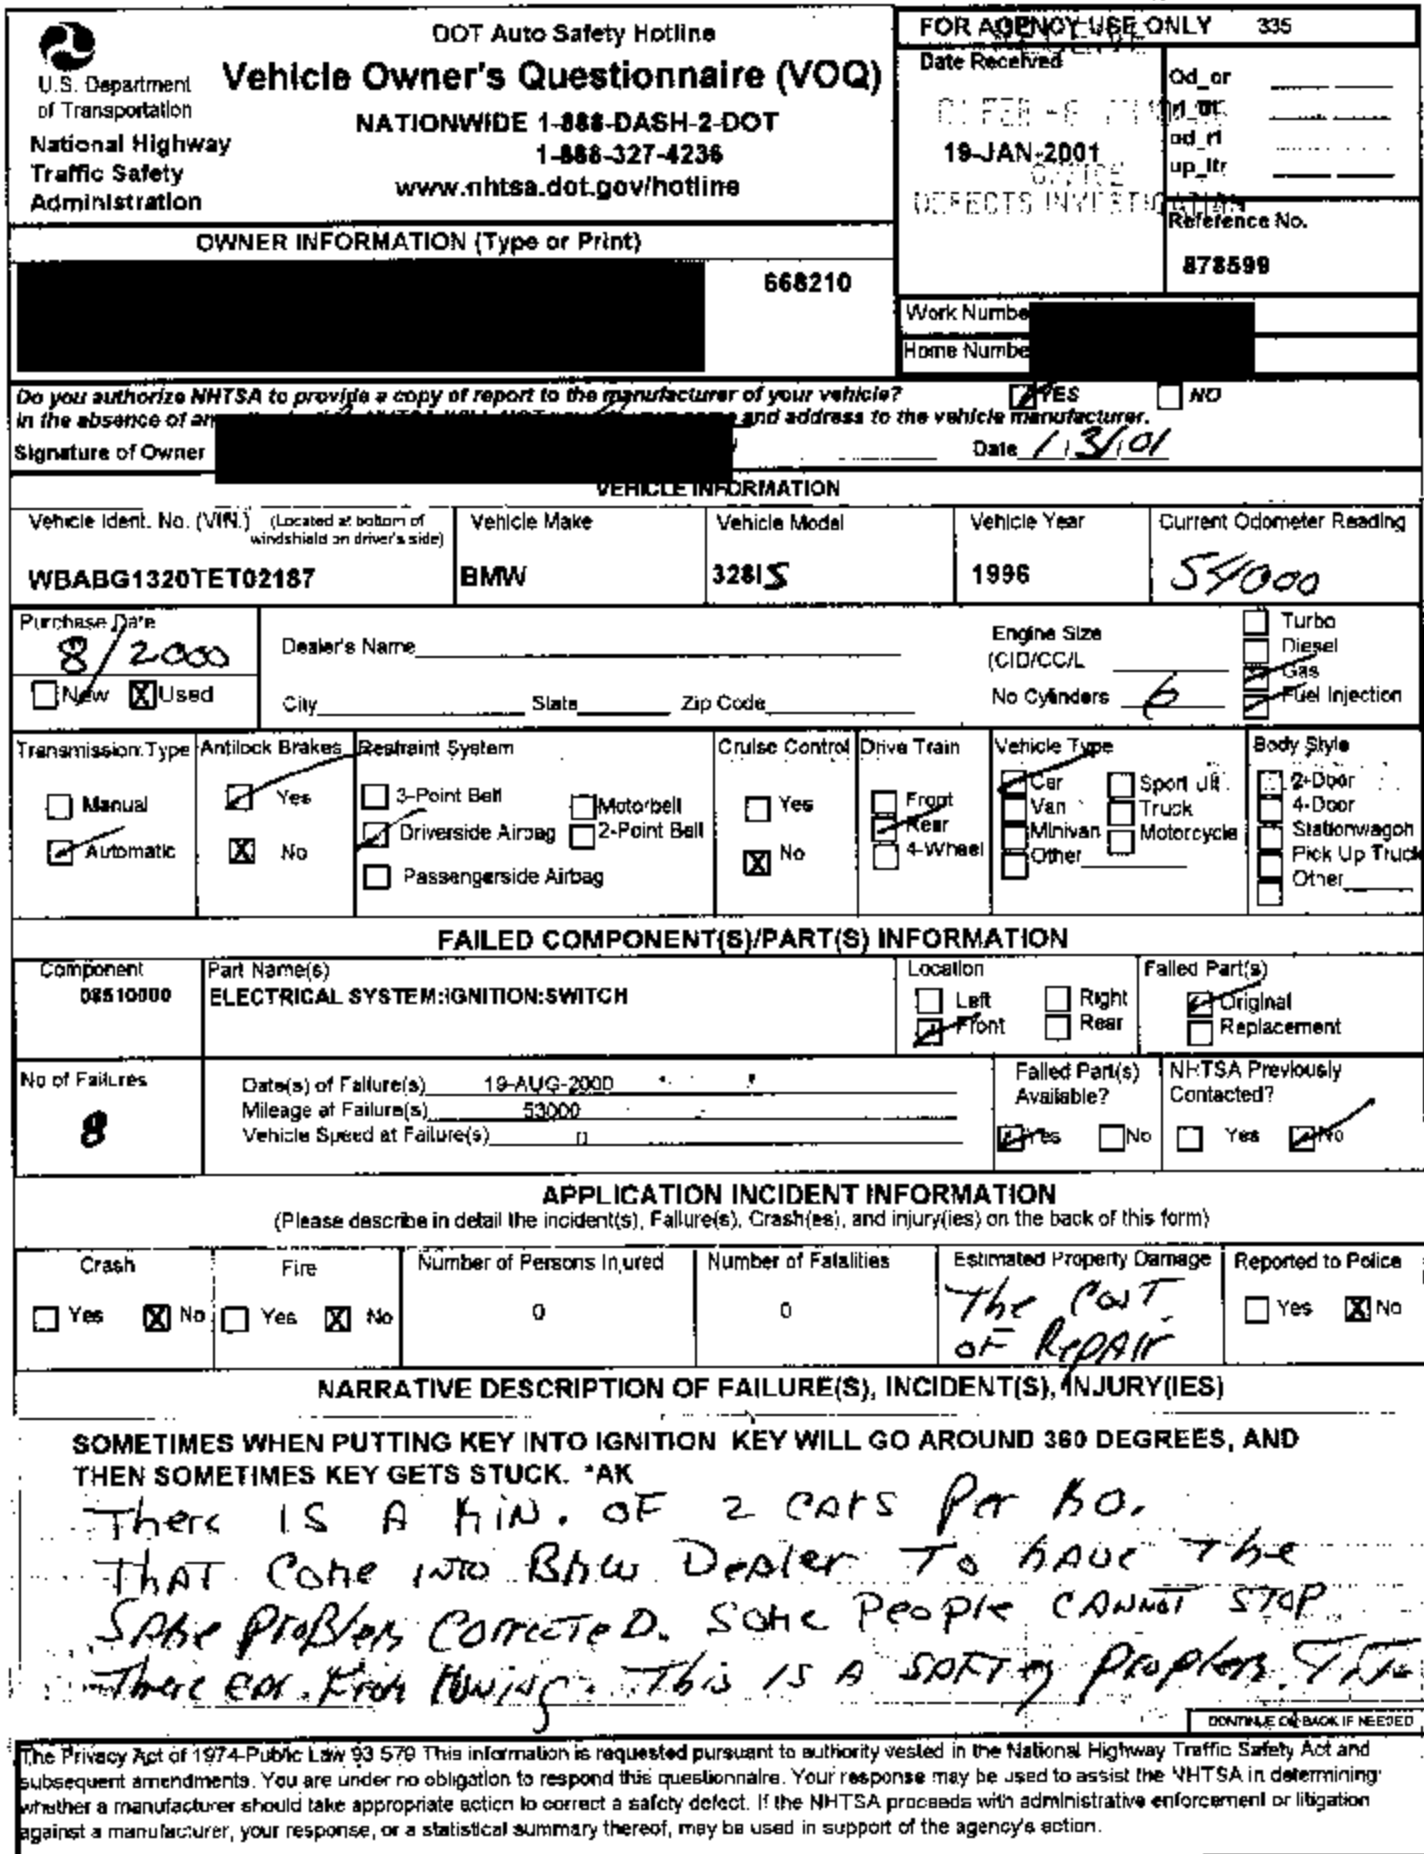 U.S. Department
of Transportation
National Highway
Traffic Safety
Administration
DOT Auto Safety Hotline
Vehicle Owner's Questionnaire (VOQ)
NATIONWIDE 1-888-DASH-2-DOT
1-888-327-4236
www.nhtsa.dot.gov/hotline
FOR AGENCY USE ONLY 335
Date Received
19-JAN-2001
DEFECTS INVESTIGATION
Od_or
od_rl
up_ltr
Reference No.
878599
OWNER INFORMATION (Type or Print)
668210
Work Numbe
Home Numbe
Do you authorize NHTSA to provide a copy of report to the manufacturer of your vehicle? YES NO
In the absence of an and address to the vehicle manufacturer.
Signature of Owner Date 1/3/01
VEHICLE INFORMATION
Vehicle Ident. No. (VIN.) (Located at bottom of windshield on driver's side)
WBABG1320TET02187
Vehicle Make
BMW
Vehicle Model
328IS
Vehicle Year
1996
Current Odometer Reading
54000
Purchase Date
8/2000
New X Used
Dealer's Name
City State Zip Code
Engine Size
(CID/CC/L
No Cylinders 6
Turbo
Diesel
Gas
Fuel Injection
Transmission Type
Manual
Automatic
Antilock Brakes
Yes
X No
Restraint System
3-Point Belt
Driverside Airbag
Passengerside Airbag
Motorbelt
2-Point Belt
Cruise Control
Yes
X No
Drive Train
Front
Rear
4-Wheel
Vehicle Type
Car
Van
Minivan
Other
Sport Util
Truck
Motorcycle
Body Style
2-Door
4-Door
Stationwagon
Pick Up Truck
Other
FAILED COMPONENT(S)/PART(S) INFORMATION
Component
08510000
Part Name(s)
ELECTRICAL SYSTEM:IGNITION:SWITCH
Location
Left Right
Front Rear
Failed Part(s)
Original
Replacement
No of Failures
8
Date(s) of Failure(s) 19-AUG-2000
Mileage at Failure(s) 53000
Vehicle Speed at Failure(s) 0
Failed Part(s) Available?
Yes No
NHTSA Previously Contacted?
Yes No
APPLICATION INCIDENT INFORMATION
(Please describe in detail the incident(s), Failure(s), Crash(es), and injury(ies) on the back of this form)
Crash
Yes X No
Fire
Yes X No
Number of Persons Injured
0
Number of Fatalities
0
Estimated Property Damage
The Cost
OF REPAIR
Reported to Police
Yes X No
NARRATIVE DESCRIPTION OF FAILURE(S), INCIDENT(S), INJURY(IES)
SOMETIMES WHEN PUTTING KEY INTO IGNITION KEY WILL GO AROUND 360 DEGREES, AND
THEN SOMETIMES KEY GETS STUCK. *AK
There IS A MIN. OF 2 CARS Per MO.
THAT COME INTO BMW Dealer To HAVE The
SAME Problem CORRECTED. SOME PEOPLE CANNOT STOP
There CAR From This IS A Problem.
CONTINUE ON BACK IF NEEDED
The Privacy Act of 1974-Public Law 93 579 This information is requested pursuant to authority vested in the National Highway Traffic Safety Act and
subsequent amendments. You are under no obligation to respond this questionnaire. Your response may be used to assist the NHTSA in determining
whether a manufacturer should take appropriate action to correct a safety defect. If the NHTSA proceeds with administrative enforcement or litigation
against a manufacturer, your response, or a statistical summary thereof, may be used in support of the agency's action.